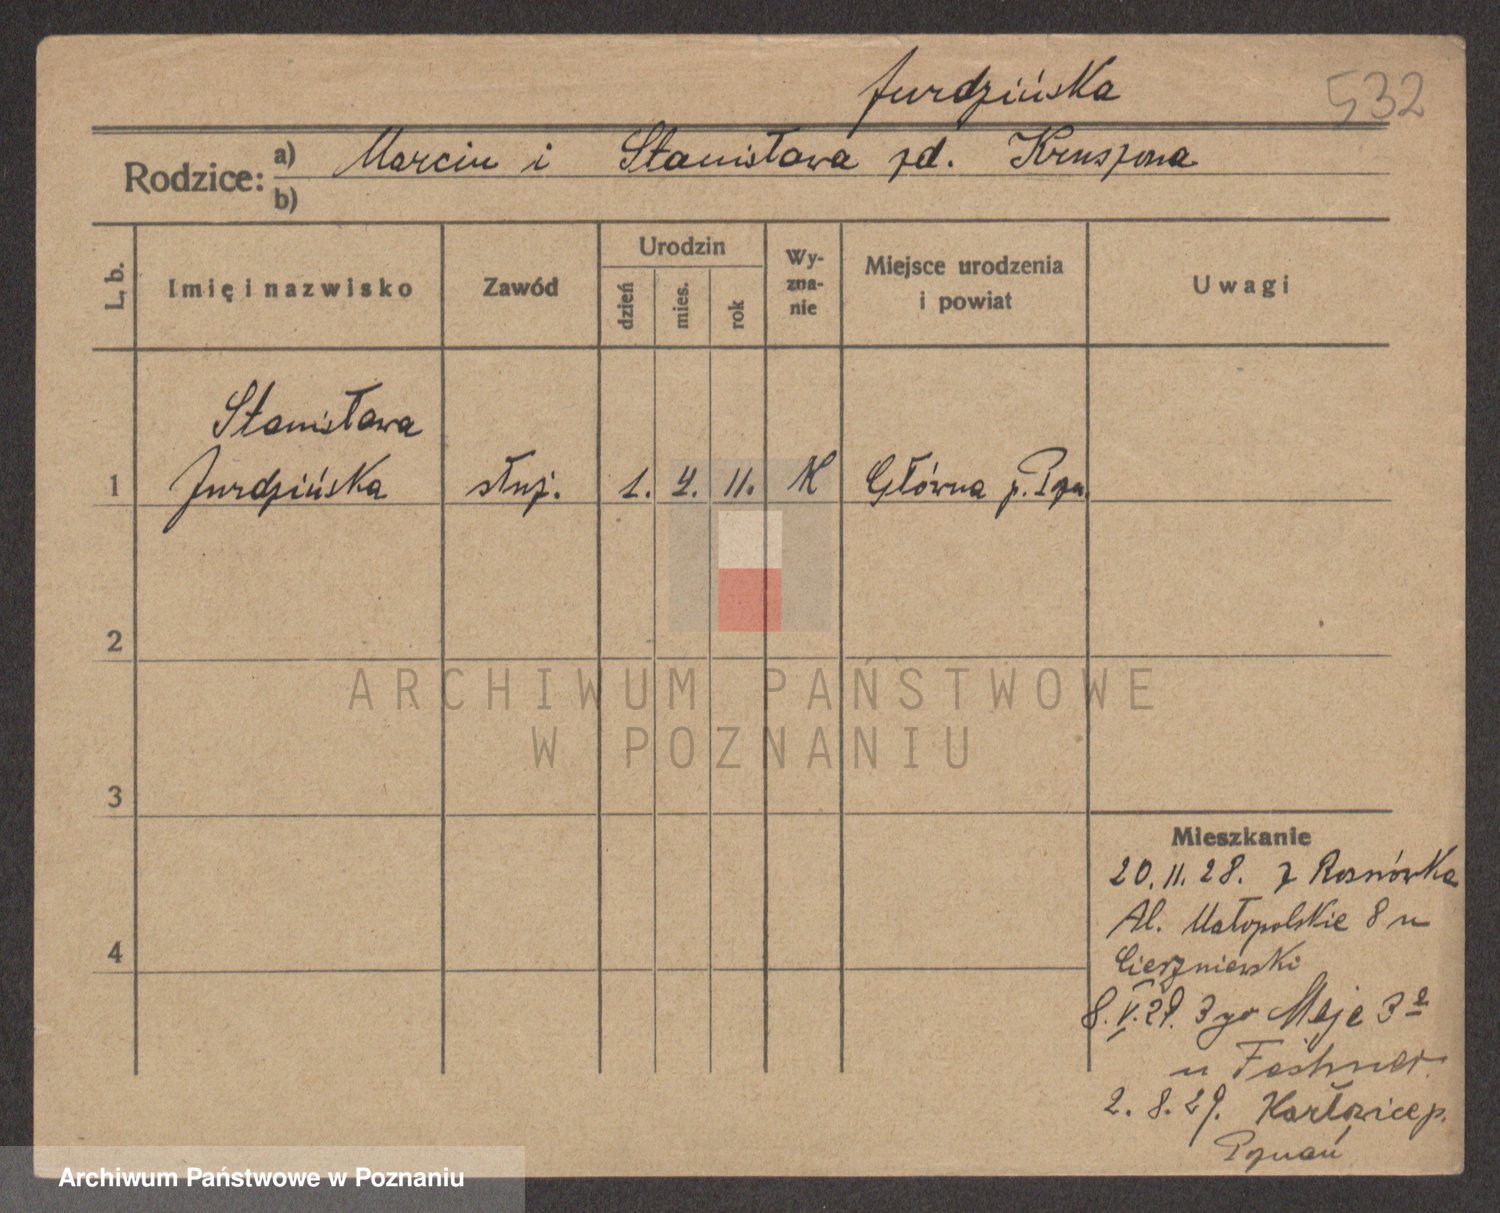 Jurdzińska
532
Rodzice:
a) Marcin i Stanisława zd. Kruszona
b)
L, b.
Imię i nazwisko
Zawód
Urodzin
dzień
mies.
rok
Wy-
zna-
nie
Miejsce urodzenia
i powiat
Uwagi
Stanisława
1 Jurdzińska służ. 1. 4. 11. K Główna p. Pozn.
2
3
4
ARCHIWUM PAŃSTWOWE
W POZNANIU
Mieszkanie
20.11.28. z Rosnówka
Al. Małopolskie 8 u
Cieszniewski
8.V.29. 3go Maja 3a
u
2.8.29. Karłowice p.
Poznań
Archiwum Państwowe w Poznaniu